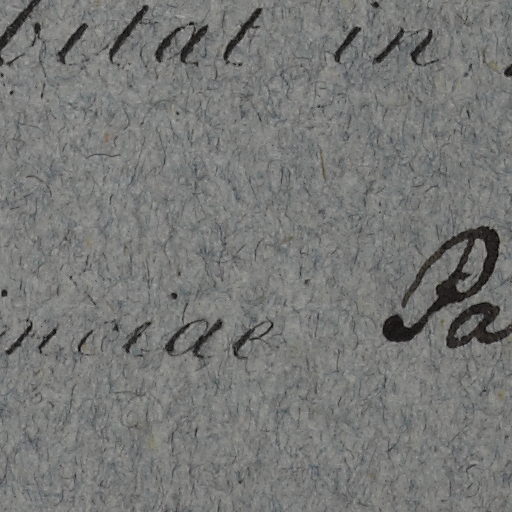 bitat in
nciae Pa